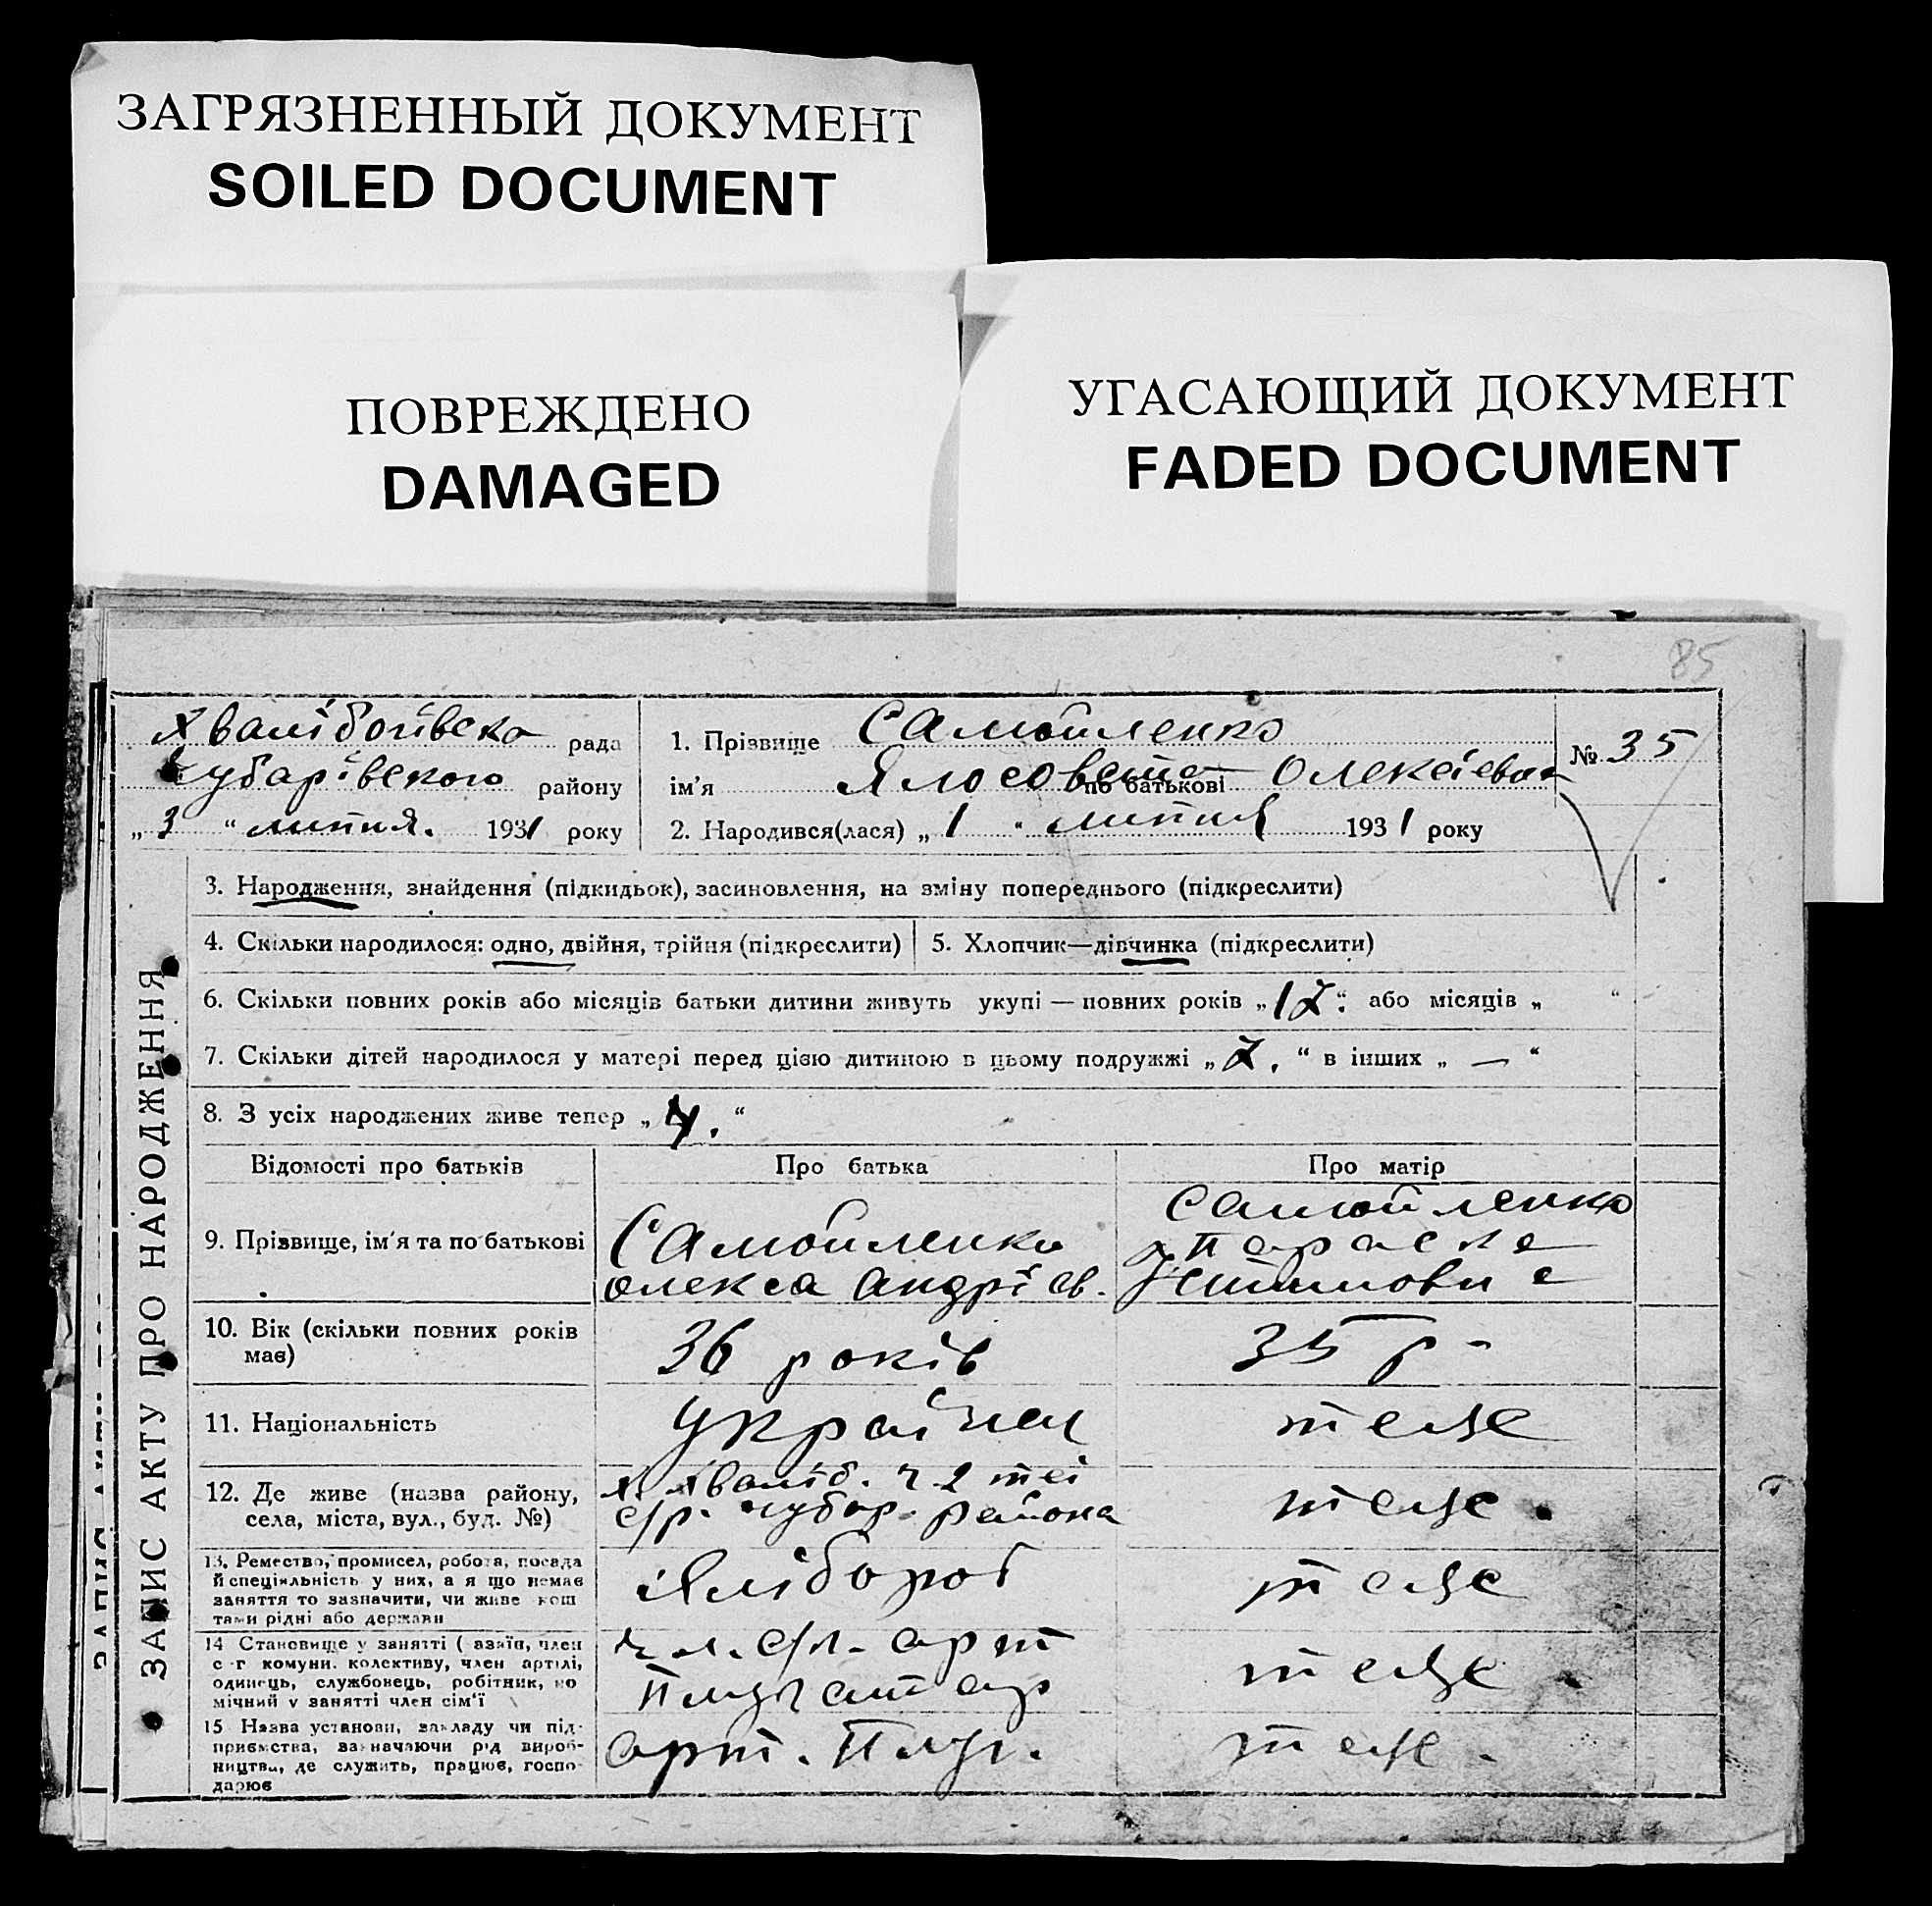 ЗАГРЯЗНЕННЫЙ ДОКУМЕНТ
SOILED DOCUMENT
ПОВРЕЖДЕНО
DAMAGED
УГАСАЮЩИЙ ДОКУМЕНТ
FADED DOCUMENT
85
рада
Чубарівского району
„ 3 “ липня. 1931 року
1. Прізвище Самойленко
ім'я по батькові
№ 35
2. Народився(лася) „ 1 “ липня 1931 року
ЗАПИС АКТУ ПРО НАРОДЖЕННЯ
3. Народження, знайдення (підкидьок), засиновлення, на зміну попереднього (підкреслити)
4. Скільки народилося: одно, двійня, трійня (підкреслити)
5. Хлопчик—дівчинка (підкреслити)
6. Скільки повних років або місяців батьки дитини живуть укупі — повних років „ “ або місяців „ “
7. Скільки дітей народилося у матері перед цією дитиною в цьому подружжі „ “ в інших „ — “
8. З усіх народжених живе тепер „ 4. “
Відомості про батьків
Про батька
Про матір
9. Прізвище, ім'я та по батькові
Самойленко
Олекса Андрієв.
Самойленко
Параска
10. Вік (скільки повних років
має)
36 років
35 р-
11. Національність
теж
12. Де живе (назва району,
села, міста, вул., буд. №)
с/р. Чубар. района
теж.
13. Ремество, промисел, робота, посада
й спеціяльність у них, а я що немає
заняття то зазначити, чи живе кош
тами рідні або держави
хлібороб
теж
14 Становище у занятті (
член
с-г комуни. колективу, член артілі,
одинець, службовець, робітник,
мічний у занятті член сім'ї
чл. с/г. арт
Плугатар
теж.
15 Назва установи, закладу чи під-
приємства, зазначаючи рід вироб-
ництва, де служить, працює, госпо-
дарює
арт. Плуг.
теж.